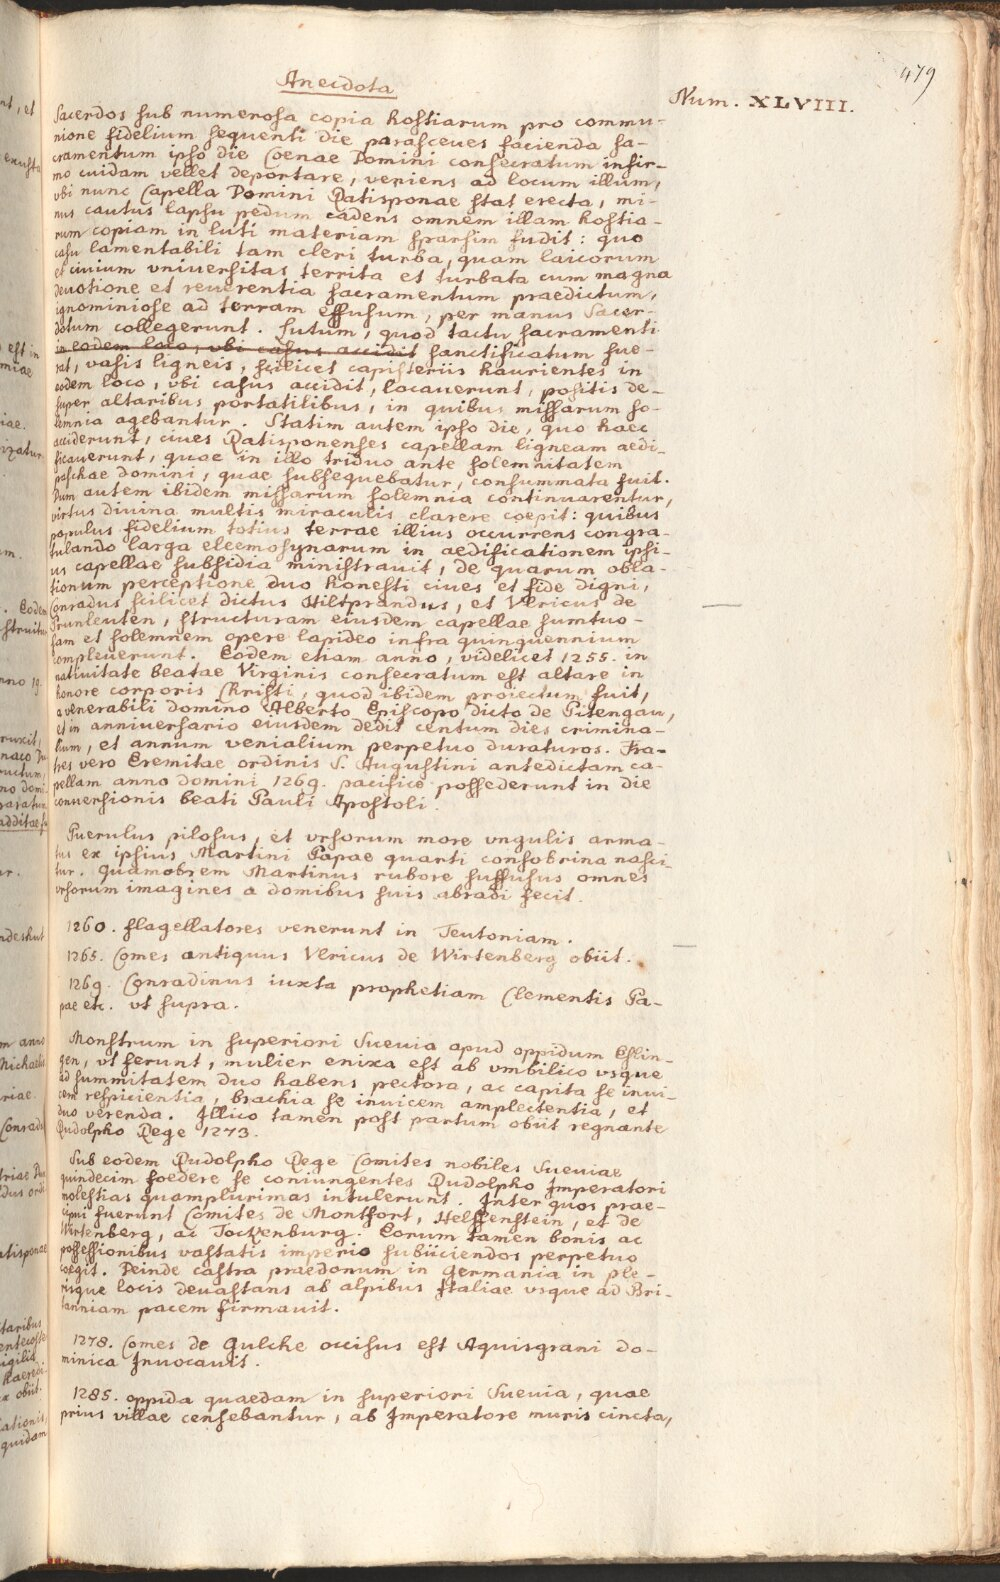 479
Anecdota
Num. XLVIII.
Sacerdos sub numerosa copia hostiarum pro commu-
nione fidelium sequenti die parasceues facienda sa-
cramentum ipso die Coenae Domini consecratum infir-
mo cuidam vellet deportare, veniens ad locum illum,
vbi nunc Capella Domini Ratisponae stat erecta, mi-
nus cautus lapsu pedum cadens omnem illam hostia-
rum copiam in luti materiam sparsim fudit: quo
casu lamentabili tam cleri turba, quam laicorum
et ciuium vniuersitas territa et turbata cum magna
deuotione et reuerentia sacramentum praedictum,
ignominiose ad terram effusum, per manus Sacer-
dotum collegerunt. Lutum, quod tactu sacramenti
in eodem loco, vbi casus accidit sanctificatum fue-
rat, vasis ligneis, scilicet capisteriis haurientes in
eodem loco, vbi casus accidit, locauerunt, positis de-
super altaribus portatilibus, in quibus missarum so-
lemnia agebantur. Statim autem ipso die, quo haec
acciderunt, ciues Ratisponenses capellam ligneam aedi-
ficauerunt, quae in illo triduo ante solemnitatem
paschae domini, quae subsequebatur, consummata fuit.
Dum autem ibidem missarum solemnia continuarentur,
virtus diuina multis miraculis clarere coepit: quibus
populus fidelium totius terrae illius occurrens congra-
tulando larga eleemosynarum in aedificationem ipsi-
us capellae subsidia ministrauit, de quarum obla-
tionum perceptione duo honesti ciues et fide digni,
Conradus scilicet dictus Hiltprandus, et Vlricus de
Prunleuten, structuram eiusdem capellae sumtuo-
sam et solemnem opere lapideo infra quinquennium
compleuerunt. Eodem etiam anno, videlicet 1255. in
natiuitate beatae Virginis consecratum est altare in
honore corporis Christi, quod ibidem proiectum fuit,
a venerabili domino Alberto Episcopo dicto de Pitengau,
et in anniuersario eiusdem dedit centum dies crimina-
lium, et annum venialium perpetuo duraturos. Fra-
tres vero Eremitae ordinis S. Augustini antedictam ca-
pellam anno domini 1269. pacifice possederunt in die
conuersionis beati Pauli Apostoli.
Puerulus pilosus, et vrsorum more vngulis arma-
tus ex ipsius Martini Papae quarti consobrina nasci-
tur. Quamobrem Martinus rubore suffusus omnes
vrsorum imagines a domibus suis abradi fecit.
1260. flagellatores venerunt in Teutoniam.
1265. Comes antiquus Vlricus de Wirtenberg obiit.
1269. Conradinus iuxta prophetiam Clementis Pa-
pae etc. vt supra.
Monstrum in superiori Sueuia apud oppidum Esslin-
gen, vt ferunt, mulier enixa est ab vmbilico vsque
ad summitatem duo habens pectora, ac capita se inui-
cem respicientia, brachia se inuicem amplectentia, et
duo verenda. Illico tamen post partum obiit regnante
Rudolpho Rege 1273.
Sub eodem Rudolpho Rege Comites nobiles Sueuiae
quindecim foedere se coniungentes Rudolpho Imperatori
molestias quamplurimas intulerunt. Inter quos prae-
cipui fuerunt Comites de Montfort, Helffenstein, et de
Wirtenberg, ac Tockenburg. Eorum tamen bonis ac
possessionibus vastatis imperio subiiciendos perpetuo
coegit. Deinde castra praedonum in Germania in ple-
risque locis deuastans ab alpibus Italiae vsque ad Bri-
tanniam pacem firmauit.
1278. Comes de Gulche occisus est Aquisgrani do-
minica Inuocauit.
1285. oppida quaedam in superiori Sueuia, quae
prius villae censebantur, ab Imperatore muris cincta,